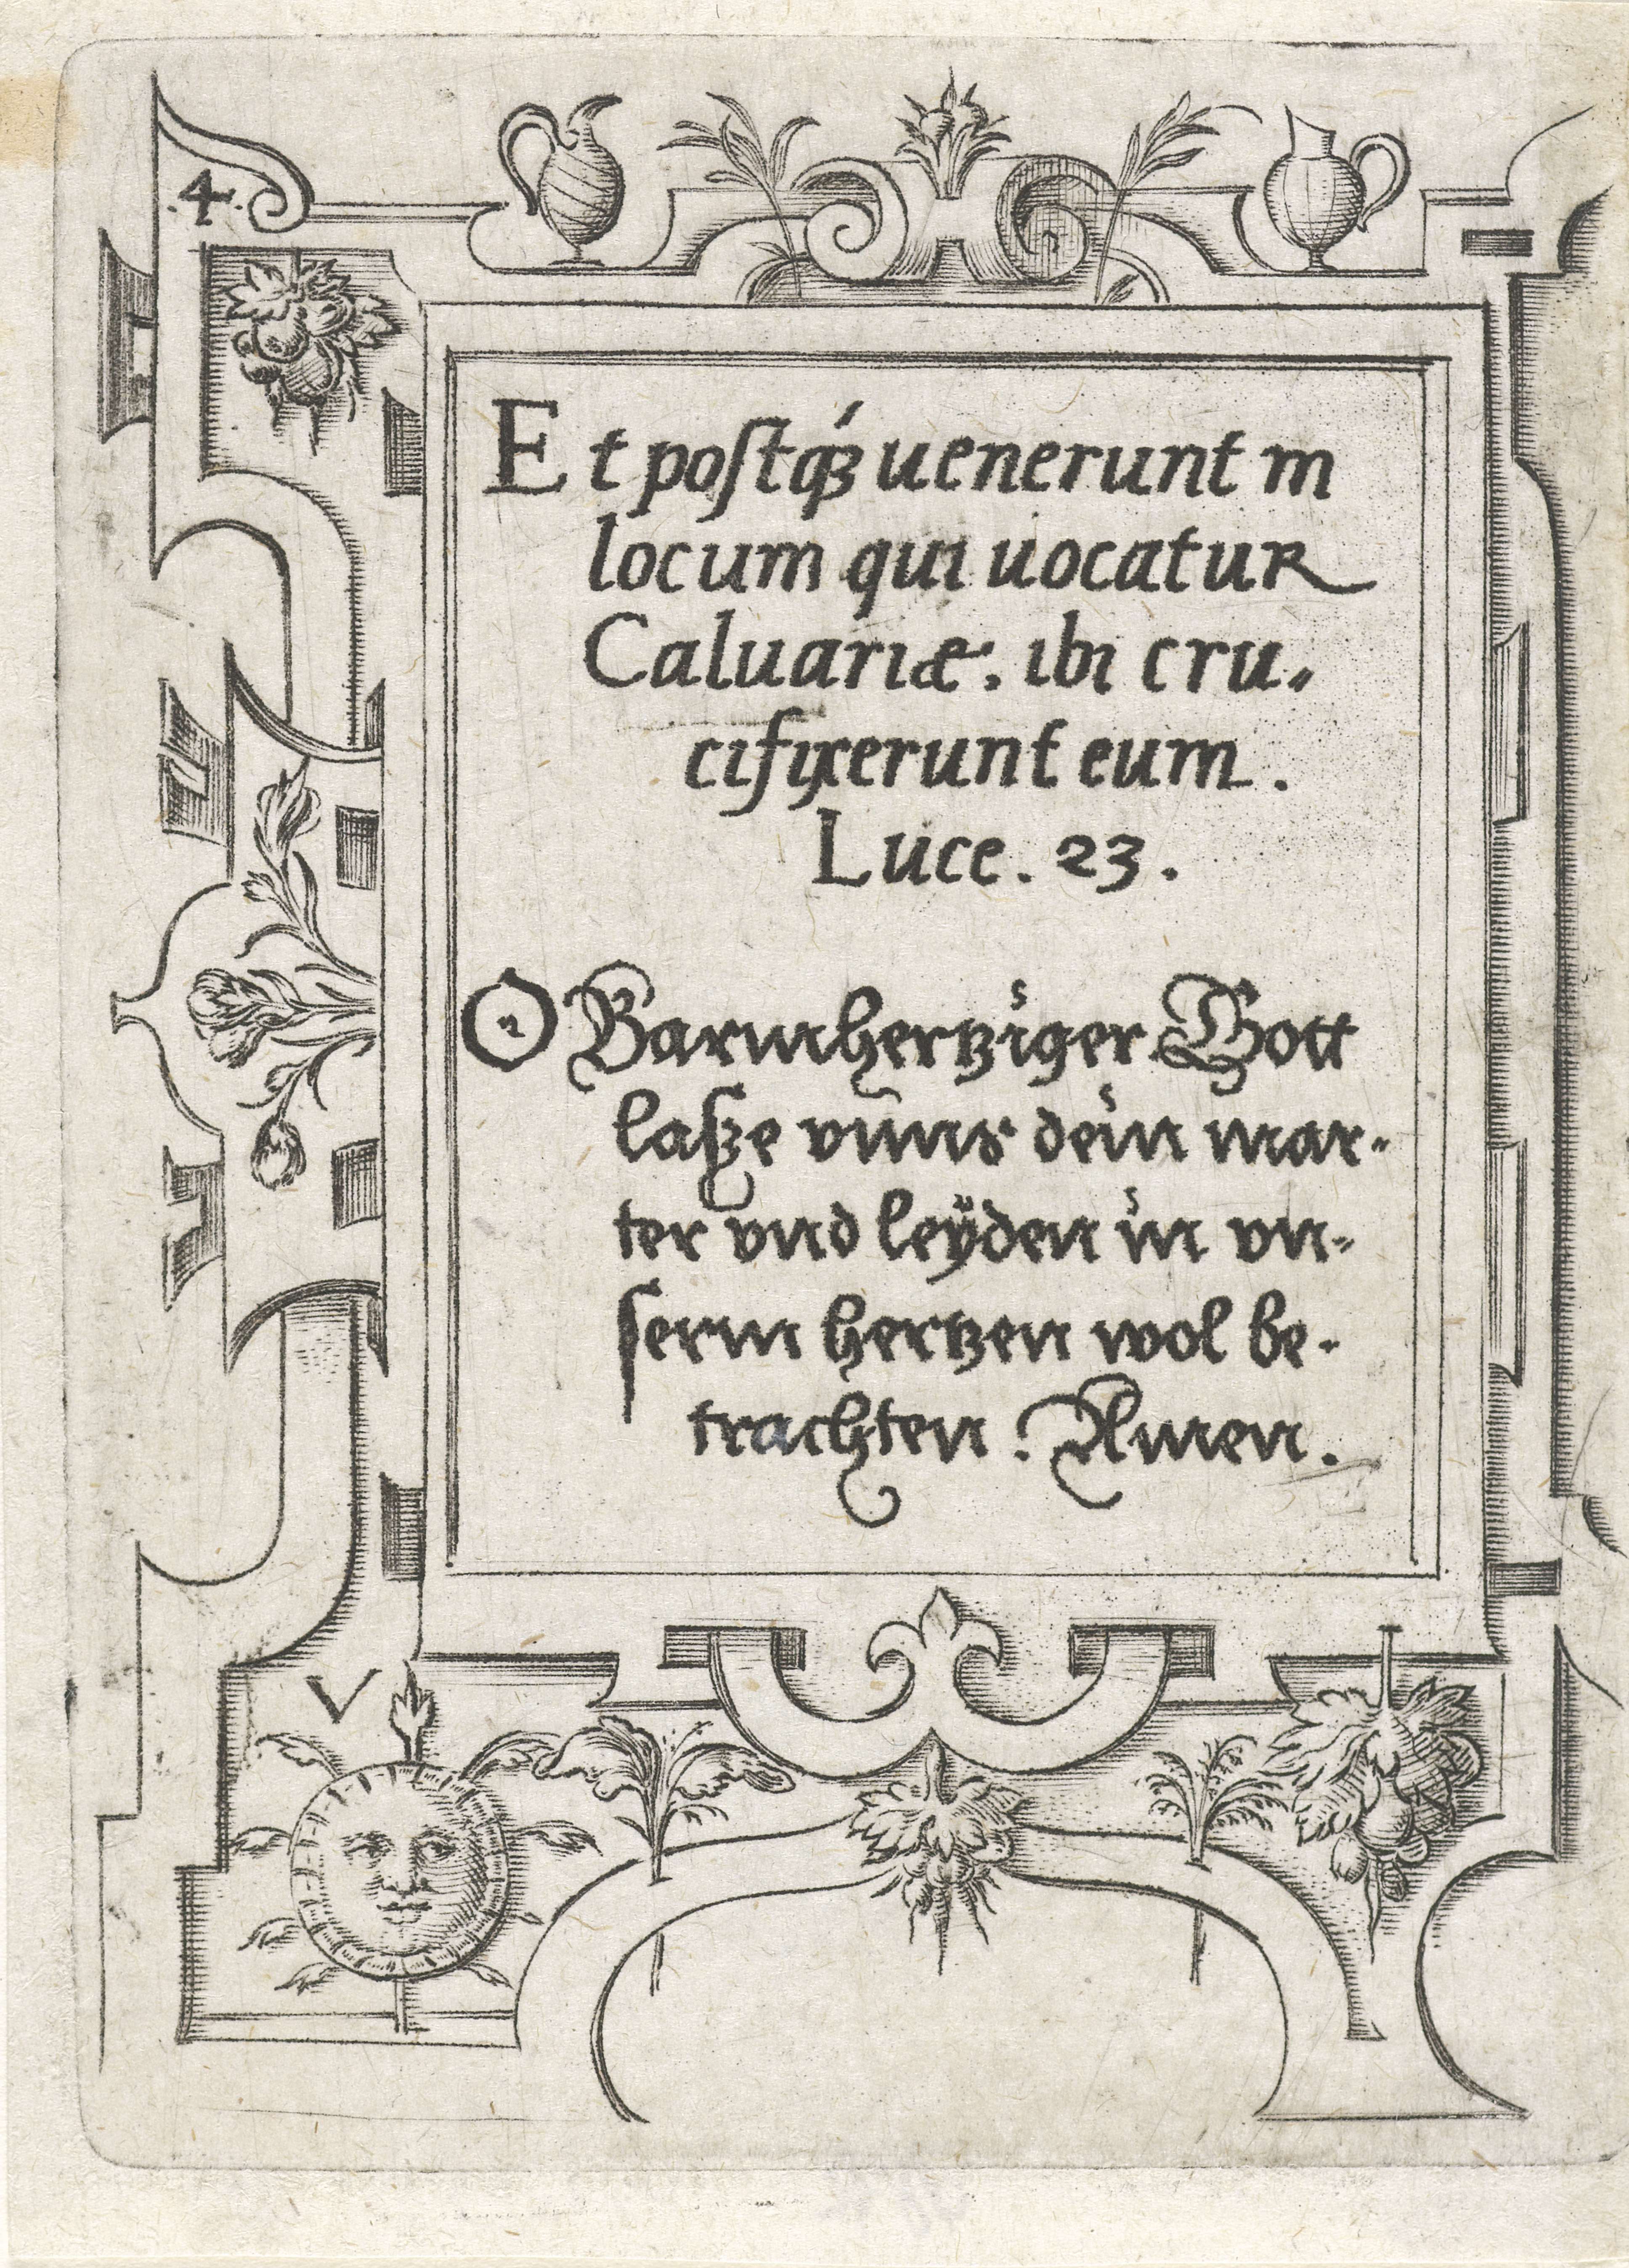 .4.
Et postq́ꝫ uenerunt in
locum qui uocatur
Caluariæ. ibi cru,,
cifixerunt eum.
Luce. 23.
O Barmhertziger Gott
laße vnns dein mar-
ter vnd leÿden in vn-
serm hertzen wol be-
trachten. Amen.
V